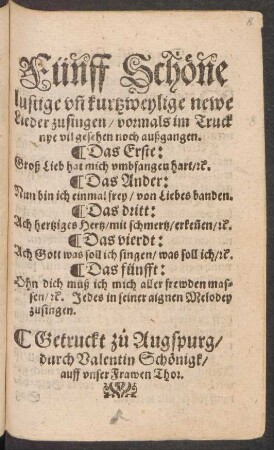 Fünff Schöne
lustige vñ kurtzweylige newe
Lieder zusingen / vormals im Truck
nye vil gesehen noch außgangen.
¶ Das Erste:
Groß Lieb hat mich vmbfangen hart/ꝛc.
¶ Das Ander:
Nun bin ich einmal frey / von Liebes banden.
¶ Das dritt:
Ach hertziges Hertz/ mit schmertz/ erkeñen/ꝛc.
¶ Das vierdt:
Ach Gott was soll ich singen/ was soll ich/ꝛc.
¶ Das fünfft:
Ohn dich muß ich mich aller frewden mas-
sen/ꝛc. Jedes in seiner aignen Melodey
zusingen.
¶ Getruckt zů Augspurg/
durch Valentin Schönigk/
auff vnser Frawen Thor.